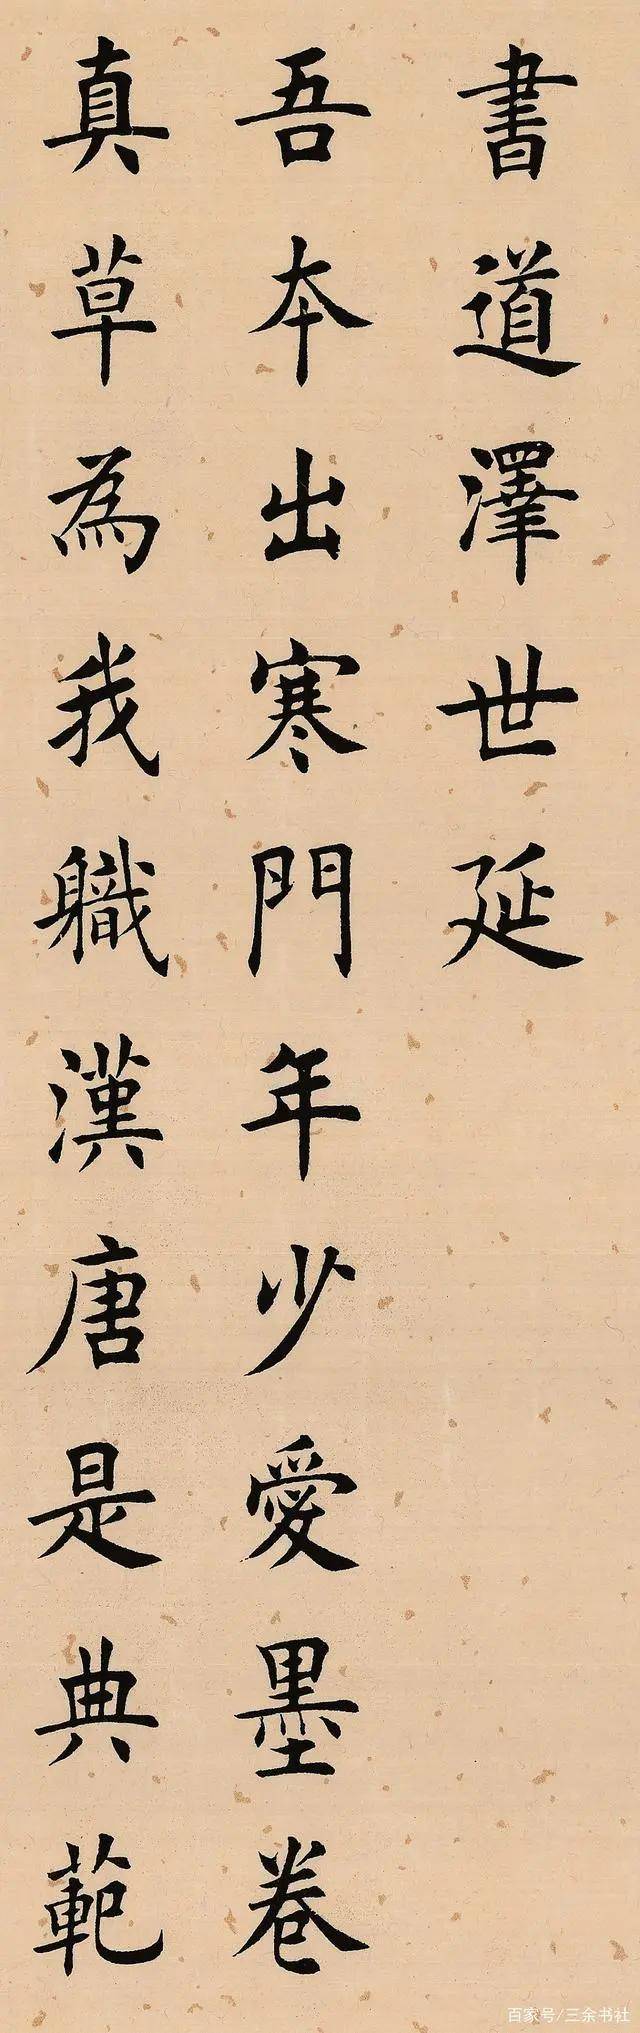 書道澤世延
吾本出寒門年少愛墨卷
真草為我軄漢唐是典範
百家号/三余书社